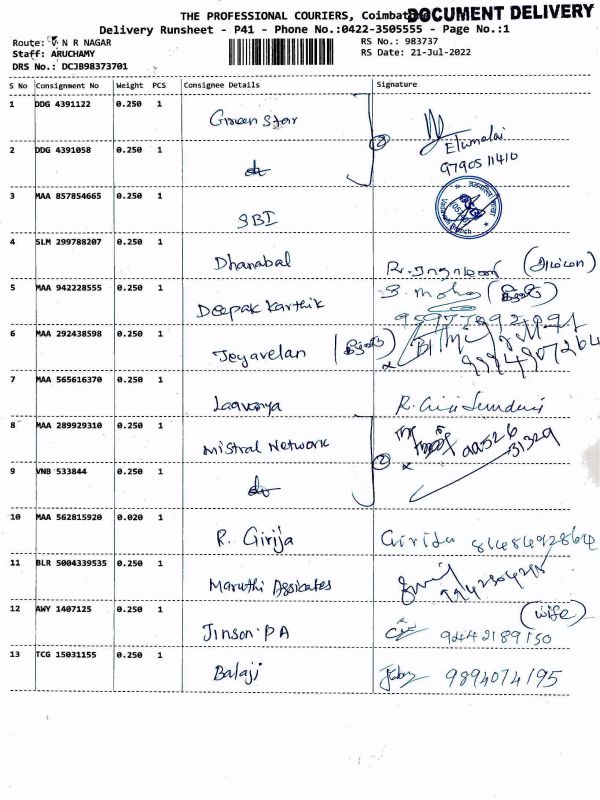 THE PROFESSIONAL COURIERS, Coimbatore
DOCUMENT DELIVERY
Delivery Runsheet - P41 - Phone No.:0422-3505555 - Page No.:1
Route: V N R NAGAR
RS No.: 983737
Staff: ARUCHAMY
RS Date: 21-Jul-2022
DRS No.: DCJB98373701
S No Consignment No Weight PCS Consignee Details Signature
1 DDG 4391122 0.250 1 Green Star
2 DDG 4391058 0.250 1 do 2 Elumalai
9790511410
3 MAA 857854665 0.250 1 SBI
4 SLM 299788207 0.250 1 Dhanabal (அம்மா)
5 MAA 942228555 0.250 1 Deepak Karthik
6 MAA 292438598 0.250 1 Jeyavelan 9994907264
7 MAA 565616370 0.250 1 Laavanya
8 MAA 289929310 0.250 1 Mistral Network
9 VNB 533844 0.250 1 do 2
10 MAA 562815920 0.020 1 R. Girija Girija 8148692864
11 BLR 5004339535 0.250 1 Maruthi
12 AWY 1407125 0.250 1 Jinson.P.A (wife)
9442189150
13 TCG 15031155 0.250 1 Balaji 9894074195